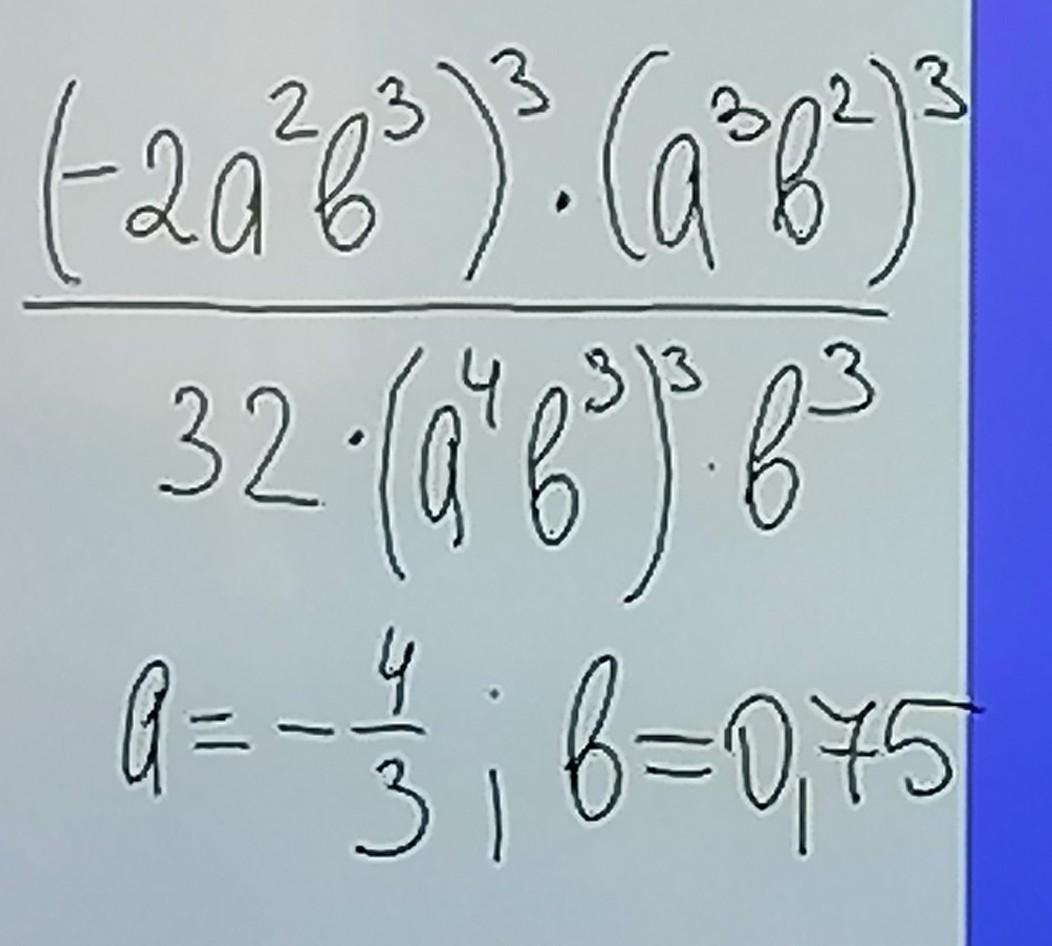 (-2a²b³)³ · (a³b²)³
32 · (a⁴b³)³ · b³
a = -4/3 ; b = 0,75